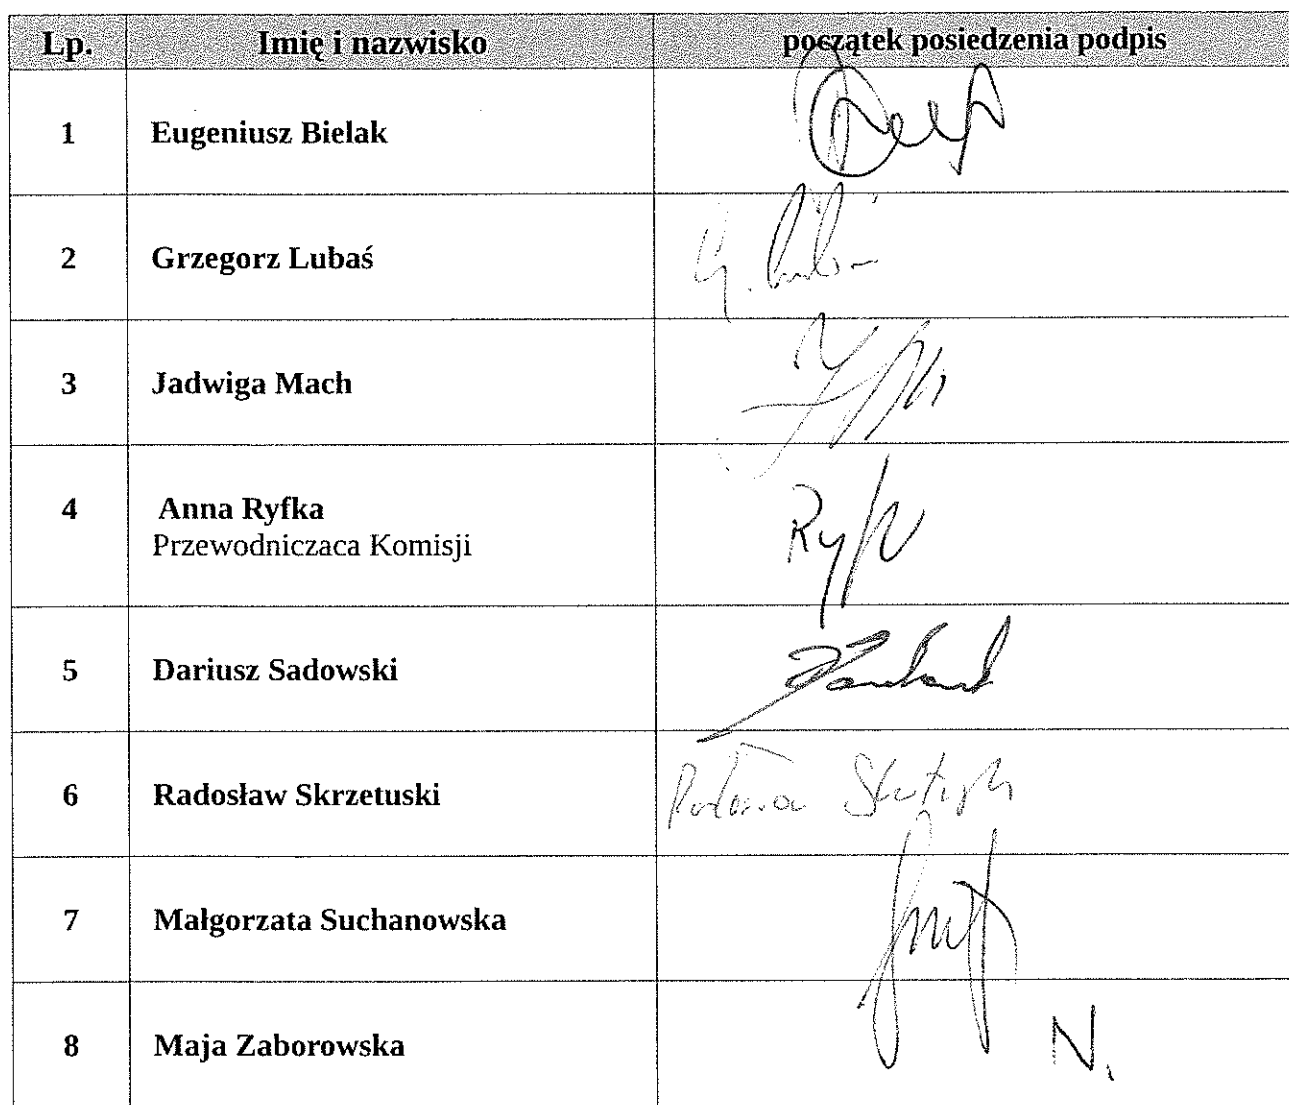 Lp. Imię i nazwisko początek posiedzenia podpis
1 Eugeniusz Bielak
2 Grzegorz Lubaś
3 Jadwiga Mach
4 Anna Ryfka
Przewodniczaca Komisji
5 Dariusz Sadowski
6 Radosław Skrzetuski
7 Małgorzata Suchanowska
8 Maja Zaborowska N.